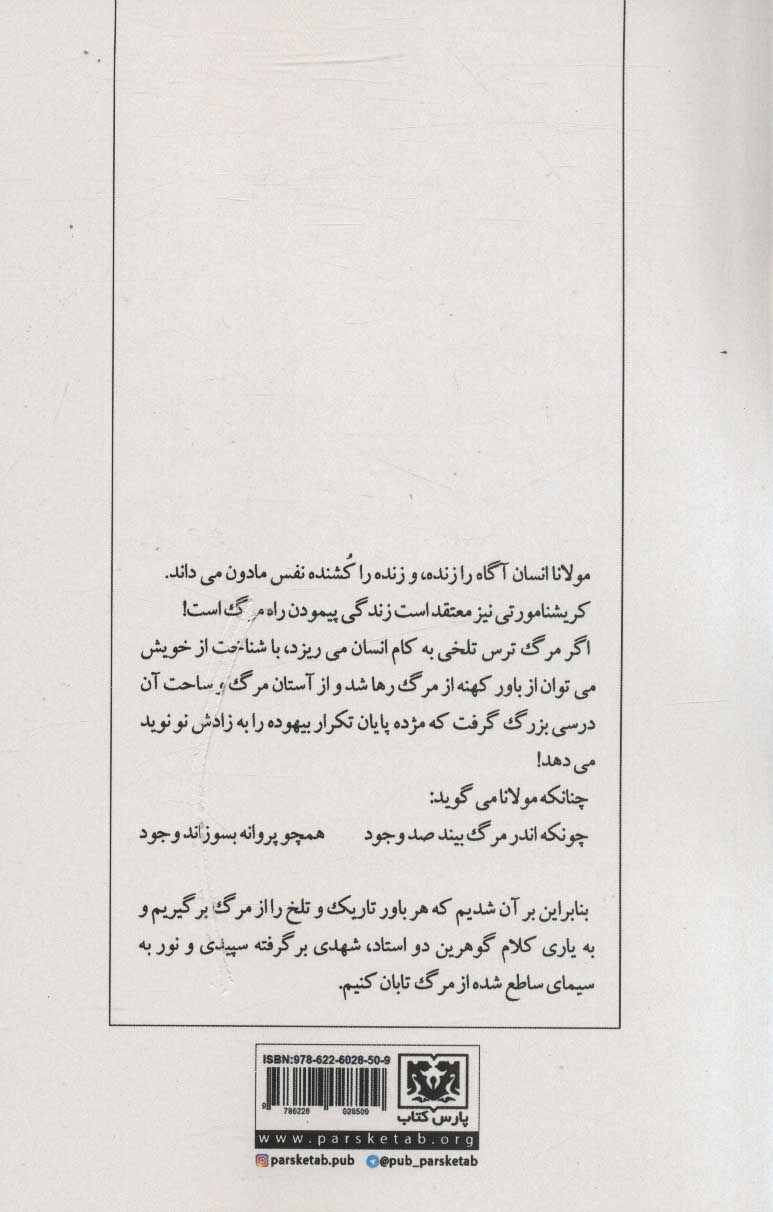 مولانا انسان آگاه را زنده، و زنده را کُشنده نفس مادون می داند.
کریشنامورتی نیز معتقد است زندگی پیمودن راه مرگ است!
اگر مرگ ترس تلخی به کام انسان می ریزد، با شناخت از خویش
می توان از باور کهنه از مرگ رها شد و از آستان مرگ و ساحت آن
درسی بزرگ گرفت که مژده پایان تکرار بیهوده را به زادش نو نوید
می دهد!
چنانکه مولانا می گوید:
چونکه اندر مرگ بیند صد وجود همچو پروانه بسوزاند وجود
بنابراین بر آن شدیم که هر باور تاریک و تلخ را از مرگ برگیریم و
به یاری کلام گوهرین دو استاد، شهدی برگرفته سپیدی و نور به
سیمای ساطع شده از مرگ تابان کنیم.
ISBN:978-622-6028-50-9
9 786226 028509
پارس کتاب
www.parsketab.org
parsketab.pub @pub_parsketab